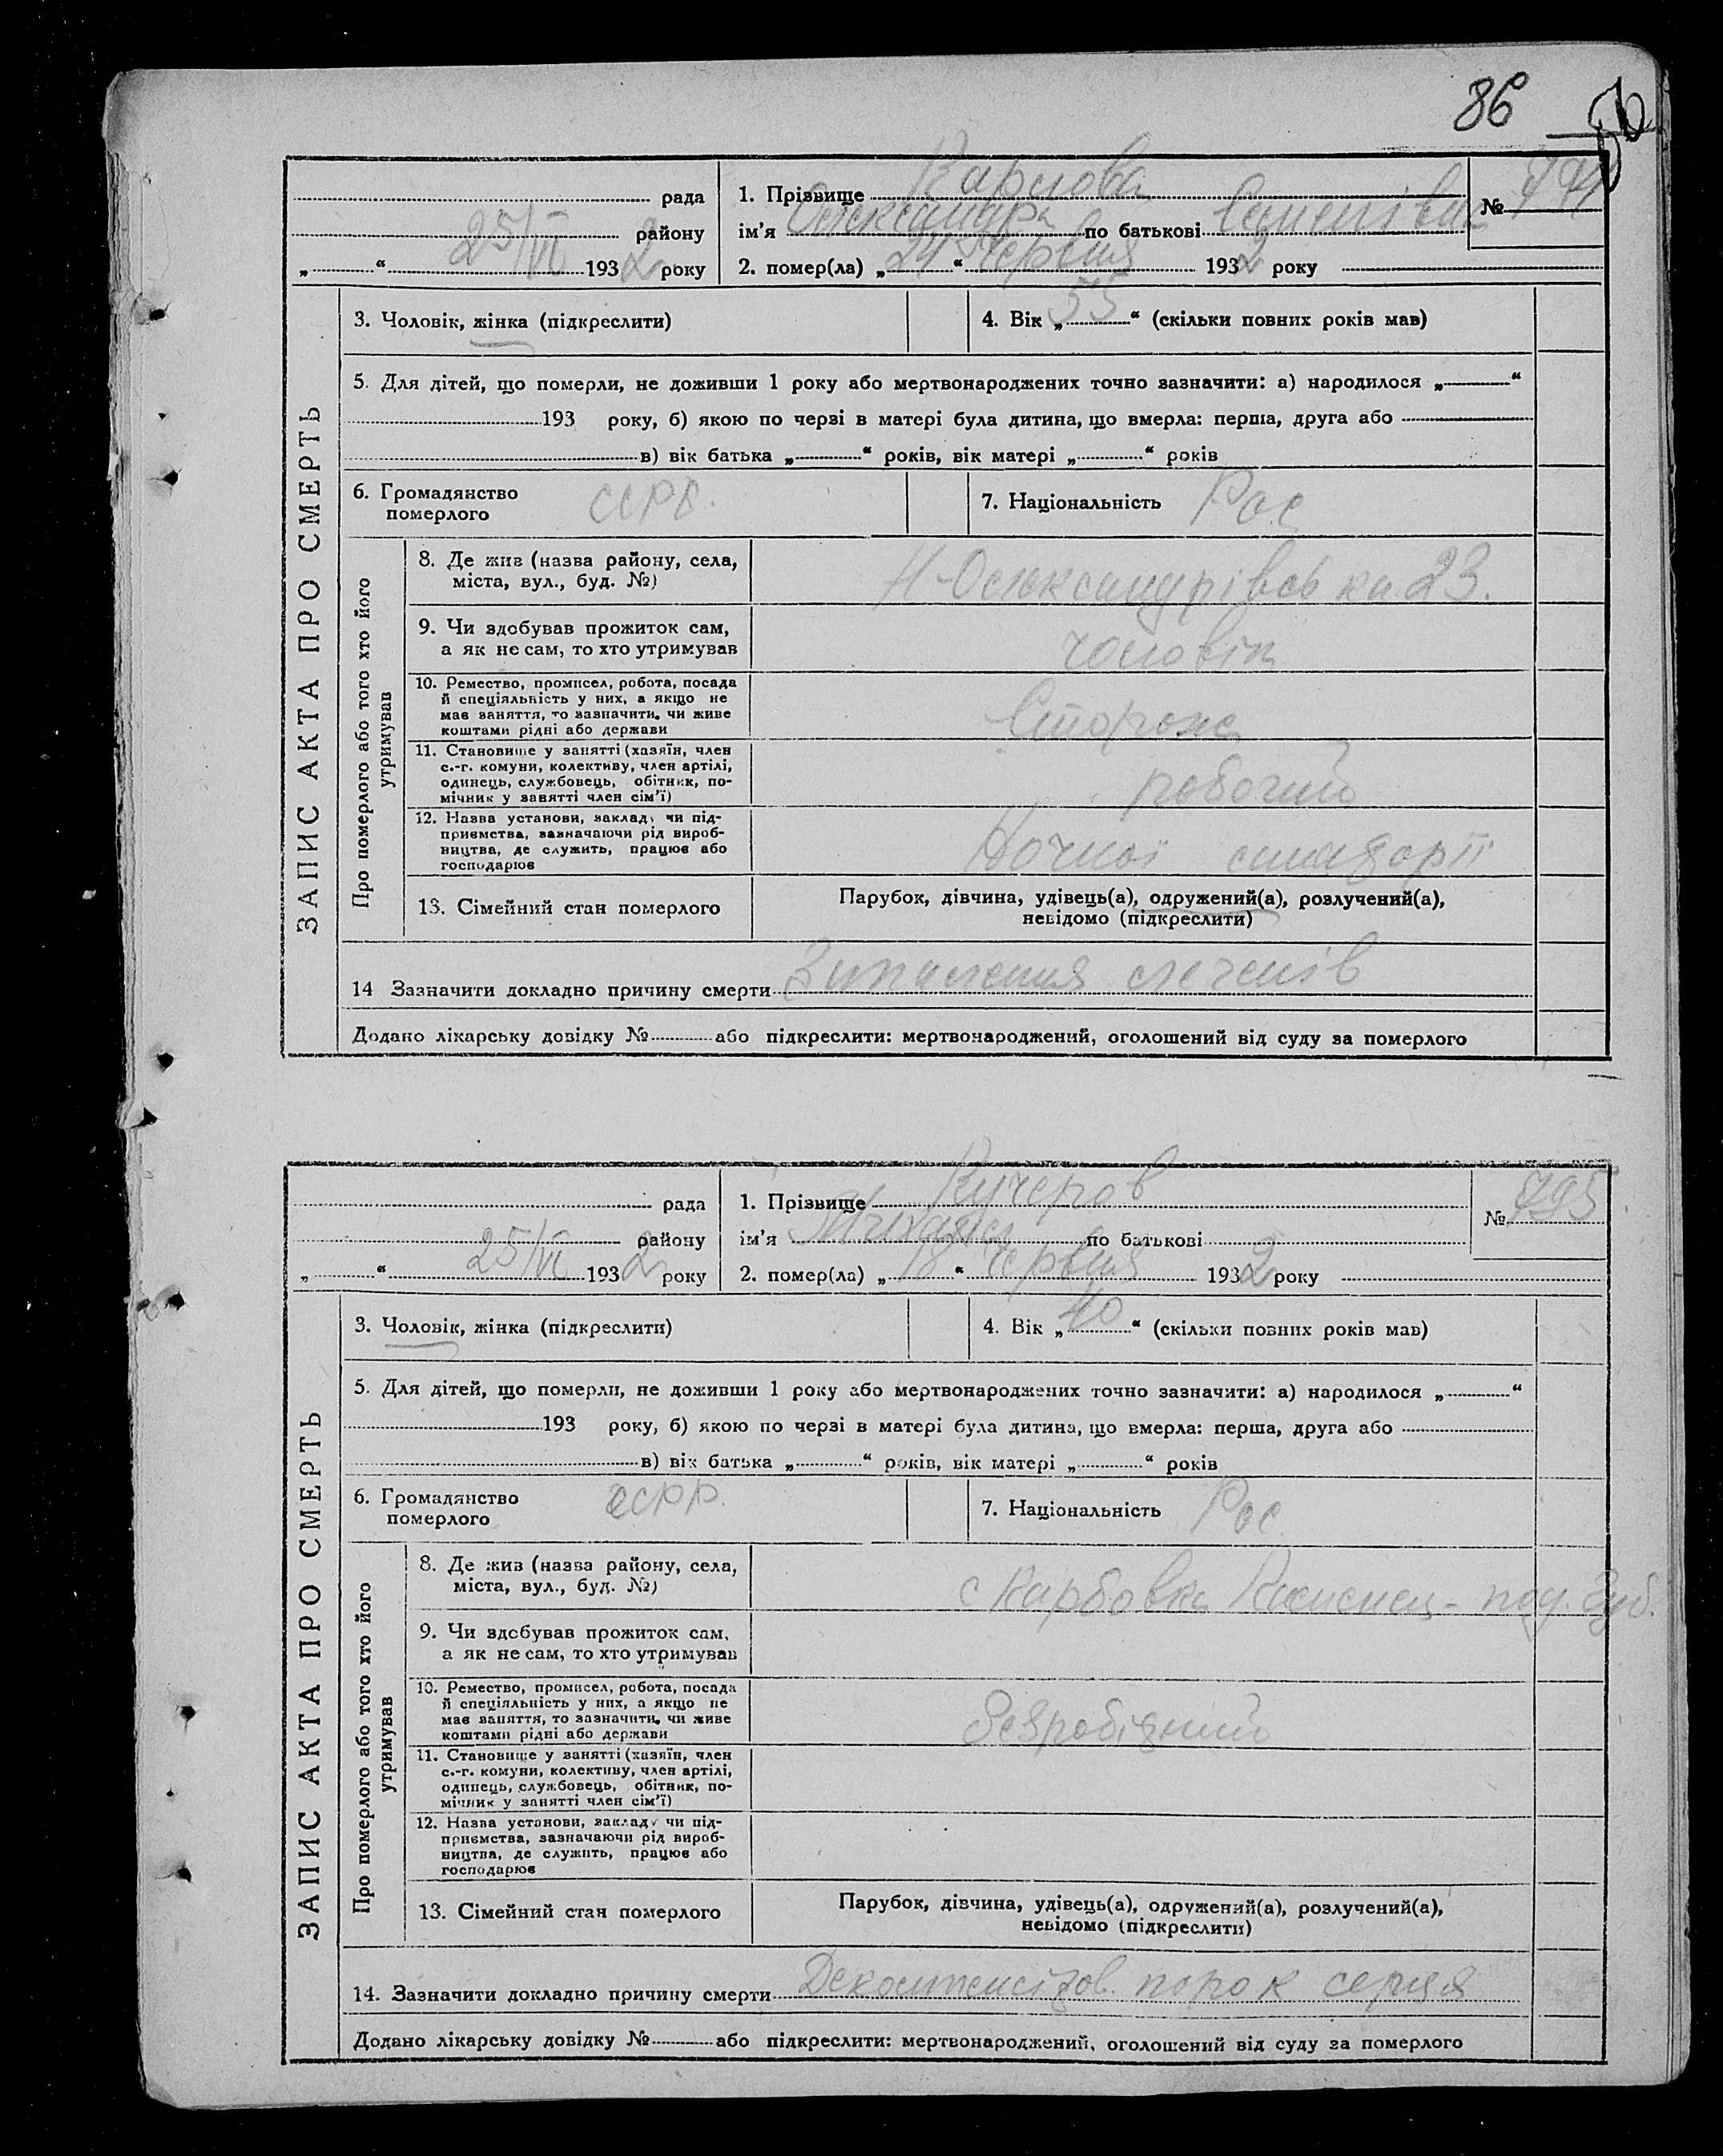 86
рада
1. Прізвище Карпова
№ 794
району
ім'я Олександра по батькові
25/VI
„ “ 1932 року
2. помер(ла) „24“ Червня 1932 року
ЗАПИС АКТА ПРО СМЕРТЬ
3. Чоловік, жінка (підкреслити)
4. Вік „55“ (скільки повних років мав)
5. Для дітей, що померли, не доживши 1 року або мертвонароджених точно зазначити: а) народилося „ “
193 року, б) якою по черзі в матері була дитина, що вмерла: перша, друга або
в) вік батька „ “ років, вік матері „ “ років
6. Громадянство
померлого
СССР.
7. Національність Рос
Про померлого або того хто його
утримував
8. Де жив (назва району, села,
міста, вул., буд. №)
Н-Олександрівська 23.
9. Чи здобував прожиток сам,
а як не сам, то хто утримував
чоловік
10. Ремество, промисел, робота, посада
й спеціяльність у них, а якщо не
має заняття, то зазначити, чи живе
коштами рідні або держави
Сторож
11. Становище у занятті (хазяїн, член
с.-г. комуни, колективу, член артілі,
одинець, службовець, обітник, по-
мічник у занятті член сім'ї)
робочий
12. Назва установи, закладу чи під-
приємства, зазначаючи рід вироб-
ництва, де служить, працює або
господарює
Ночної
13. Сімейний стан померлого
Парубок, дівчина, удівець(а), одружений(а), розлучений(а),
невідомо (підкреслити)
14 Зазначити докладно причину смерти Запалення легенів
Додано лікарську довідку № або підкреслити: мертвонароджений, оголошений від суду за померлого
рада
1. Прізвище Кучеров
№ 795
району
ім'я Михаил по батькові
25/VI
„ “ 1932 року
2. помер(ла) „18“ Червня 1932 року
ЗАПИС АКТА ПРО СМЕРТЬ
3. Чоловік, жінка (підкреслити)
4. Вік „40“ (скільки повних років мав)
5. Для дітей, що померли, не доживши 1 року або мертвонароджених точно зазначити: а) народилося „ “
193 року, б) якою по черзі в матері була дитина, що вмерла: перша, друга або
в) вік батька „ “ років, вік матері „ “ років
6. Громадянство
померлого
УСРР.
7. Національність Рос
Про померлого або того хто його
утримував
8. Де жив (назва району, села,
міста, вул., буд. №)
с Карбовка Каменец-под. Губ.
9. Чи здобував прожиток сам,
а як не сам, то хто утримував
10. Ремество, промисел, робота, посада
й спеціяльність у них, а якщо не
має заняття, то зазначити, чи живе
коштами рідні або держави
Безробітний
11. Становище у занятті (хазяїн, член
с.-г. комуни, колективу, член артілі,
одинець, службовець, обітник, по-
мічник у занятті член сім'ї)
12. Назва установи, закладу чи під-
приємства, зазначаючи рід вироб-
ництва, де служить, працює або
господарює
13. Сімейний стан померлого
Парубок, дівчина, удівець(а), одружений(а), розлучений(а),
невідомо (підкреслити)
14. Зазначити докладно причину смерти Декомпенсізов. порок серця
Додано лікарську довідку № або підкреслити: мертвонароджений, оголошений від суду за померлого